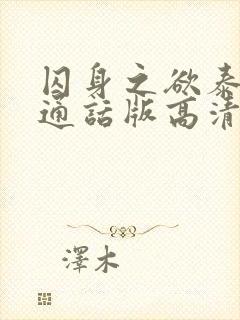 囚身之欲泰
通話版高清
澤木